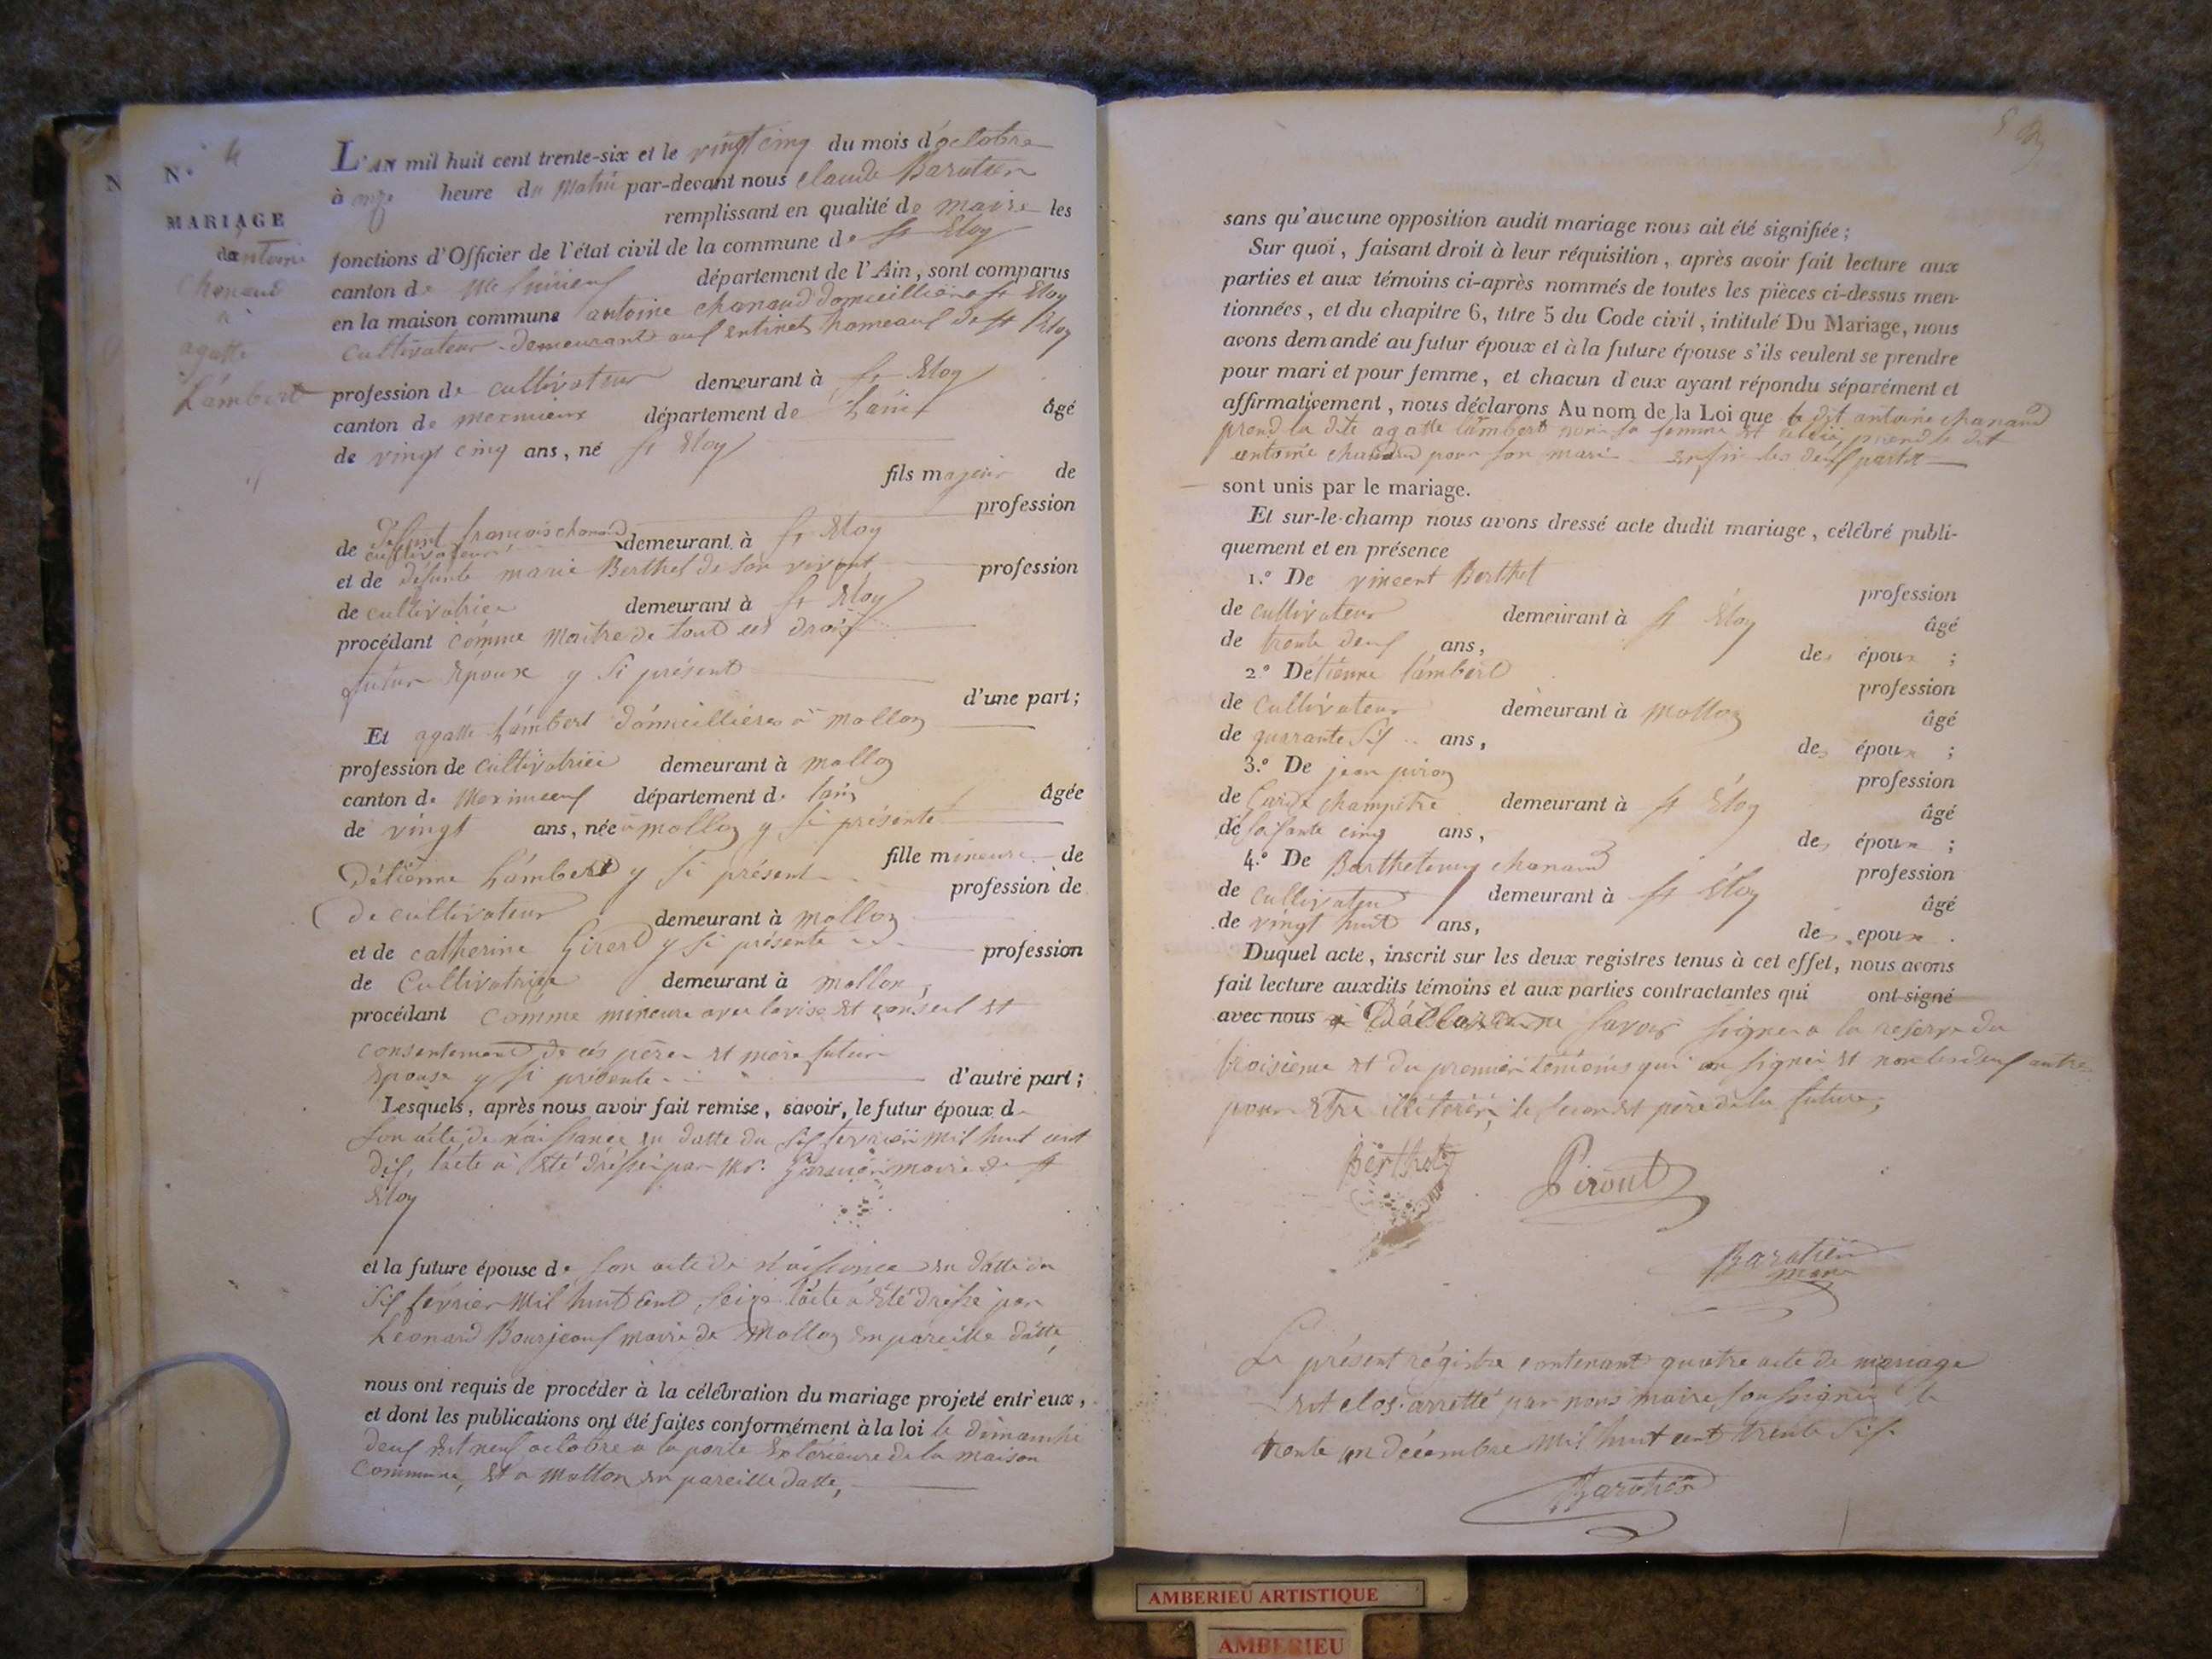 N.º 4
MARIAGE
de antoine
Chanaud
à
agatte
Lámbert
L'AN mil huit cent trente-six et le vingt cinq du mois d'octobre
à onze heure du Matin par-devant nous Claude Baratier
remplissant en qualité de maire les
fonctions d'Officier de l'état civil de la commune de St Eloy
canton de département de l'Ain, sont comparus
en la maison commune antoine chanaud domicillié à St Eloy
cultivateur demeurant aux hameaux de St Eloy
profession de cultivateur demeurant à St Eloy
canton de meximieux département de âgé
de vingt cinq ans, né St Eloy
fils majeur de
profession
de défunt francois chanaud demeurant à St Eloy
cultivateur
et de défunte marie Berthet de son vivant profession
de cultivatrice demeurant à St Eloy
procédant comme maitre de tout ces droit
futur Époux y si présent
d'une part;
Et agatte Lámbert domicillière à mollon
profession de cultivatrice demeurant à mollon
canton de département de lain âgée
de vingt ans, née à mollon y si présente
fille mineure de
Détiénne Lámbert y si présent
profession de
de cultivateur demeurant à mollon
et de catherine Girerd y si présente profession
de Cultivatrice demeurant à mollon,
procédant Comme mineure avec lavise et conseil et
consentement de ces père et mère future
Epouse y si présente d'autre part;
Lesquels, après nous avoir fait remise, savoir, le futur époux d
Son acte de naissance en datte du six fevrier mil huit cent
dix, lacte a été dréssé par Mr. maire de St
Eloy
et la future épouse de son acte de naissance en datte du
six fevrier mil huit cent seize lacte a été dressé par
Léonard Bourjeous maire de Mollon en pareille datte,
nous ont requis de procéder à la célébration du mariage projeté entr'eux,
et dont les publications ont été faites conformément à la loi le dimanche
deux et neuf octobre a la porte extérieure de la maison
Commune, et a Mollon en pareille datte,
sans qu'aucune opposition audit mariage nous ait été signifiée;
Sur quoi, faisant droit à leur réquisition, après avoir fait lecture aux
parties et aux témoins ci-après nommés de toutes les pièces ci-dessus men-
tionnées, et du chapitre 6, titre 5 du Code civil, intitulé Du Mariage, nous
avons demandé au futur époux et à la future épouse s'ils veulent se prendre
pour mari et pour femme, et chacun d'eux ayant répondu séparément et
affirmativement, nous déclarons Au nom de la Loi que le dit antoine chanaud
prend la dite agatte lámbert pour sa femme et prend le dit
antoine chanaud pour son mari enfin les deux partie
sont unis par le mariage.
Et sur-le-champ nous avons dressé acte dudit mariage, célébré publi-
quement et en présence
1.º De vincent Berthet
profession
de cultivateur demeurant à St Eloy âgé
de trente deux ans, des époux ;
2.º Détiénne lámbert
profession
de Cultivateur demeurant à Mollon âgé
de quarante six ans, des époux ;
3.º De jean piron
profession
de Garde champétre demeurant à St Eloy âgé
de soisante cinq ans, des époux ;
4.º De Barthelemy chanaud
profession
de cultivateur demeurant à St Eloy âgé
de vingt huit ans, des époux .
Duquel acte, inscrit sur les deux registres tenus à cet effet, nous avons
fait lecture auxdits témoins et aux parties contractantes qui ont signé
avec nous savoir signer a la reserve du
troisieme et du premier témoins qui on signer et non les deux autre
pour etre illiteré, le second père de la future,
Berthet
Piront
Baratier
maire
Le présent régistre contenant quatre acte de mariage
est clos arretté par nous maire soussigné le
trente un décembre mil huit cent trente six.
Baratier
AMBERIEU ARTISTIQUE
AMBERIEU